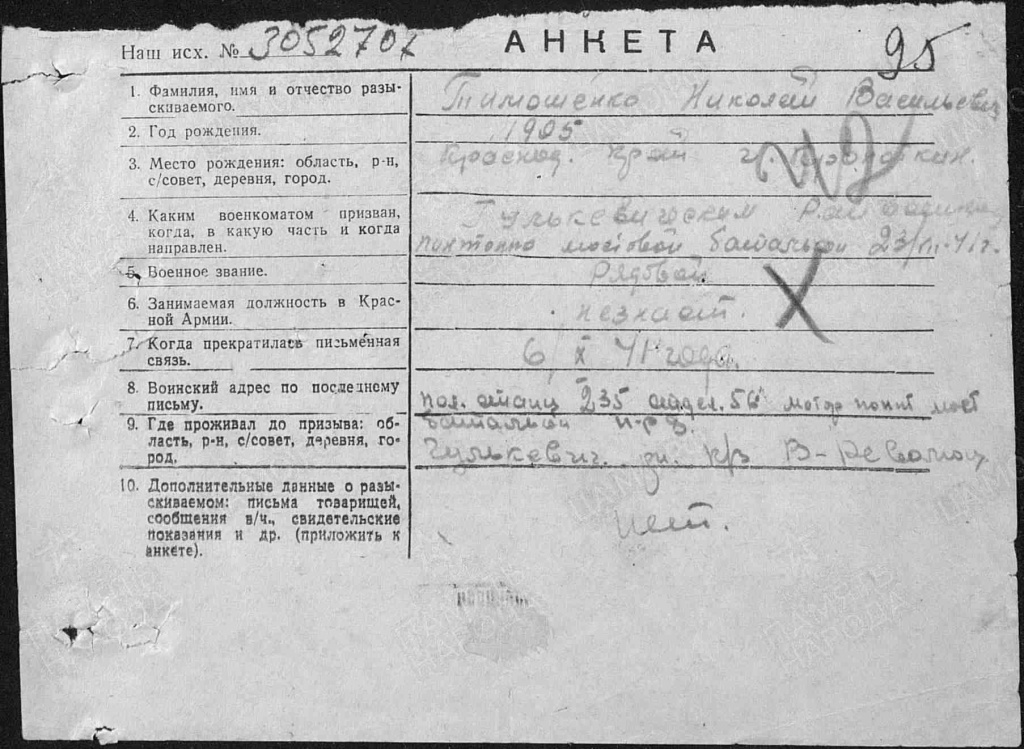 Наш исх. № 305270х
АНКЕТА
95
1. Фамилия, имя и отчество разы-
скиваемого.
Тимошенко Николай Васильевич
2. Год рождения.
1905
3. Место рождения: область, р-н,
с/совет, деревня, город.
Краснод. край г. Кропоткин.
4. Каким военкоматом призван,
когда, в какую часть и когда
направлен.
Гулькевичским
понтонно мостовой батальон 23/
41 г.
5. Военное звание.
Рядовой
6. Занимаемая должность в Крас-
ной Армии.
незнает.
7. Когда прекратилась письменная
связь.
6/X 41 года.
8. Воинский адрес по последнему
письму.
пол. станц 235 отдел. 56 мотор понт мост
батальон
9. Где проживал до призыва: об-
ласть, р-н, с/совет, деревня, го-
род.
Гулькевич.
10. Дополнительные данные о разы-
скиваемом: письма товарищей,
сообщения в/ч., свидетельские
показания и др. (приложить к
анкете).
нет.
ПАМЯТЬ
НАРОДА